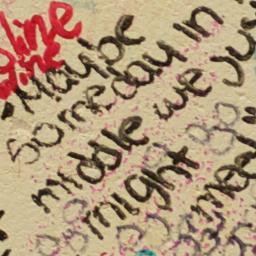 line
line
"Maybe
someday in
middle we ju
might
meet"